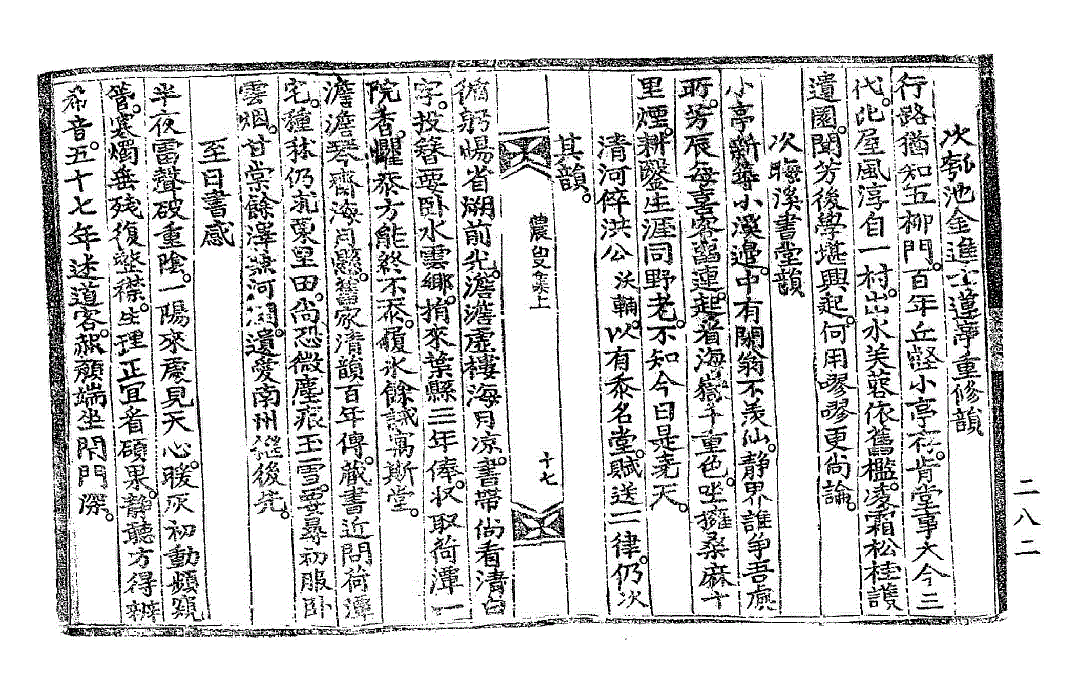 次瓠池金進士遵華重修韻
行路猶知五柳門。百年丘壑小亭存。肯堂事大今三
代。比屋風淳自一村。山水芙蓉依舊檻。凌霜松桂護
遺園。聞芳後學堪興起。何用嘐嘐更尙論。
次晦溪書堂韻
小亭新築小溪邊。中有閑翁不羡仙。靜界誰爭吾廡
所。芳辰每喜客留連。起看海嶽千重色。坐擁桑麻十
里煙。耕鑿生涯同野老。不知今日是堯天。
淸河倅洪公 沃輔。以有黍名堂。賦送二律。仍次
其韻。
農叟集上
十七
循躬惕省溯前光。澹澹虛樓海月凉。書帶尙看淸白
字。投簪要卧水雲鄕。捎來葉縣三年俸。収取荷潭一
院香。懼忝方能終不忝。領氷餘誡寓斯堂。
澹澹琴齋海月懸。舊家淸韻百年傳。藏書近問荷潭
宅。種秫仍荒栗里田。尙恐微塵痕玉雪。要尋初服卧
雲烟。甘棠餘澤淸河濶。遺愛南州繼後先。
至日書感
半夜雷聲破重陰。一陽來處見天心。暖灰初動頻窺
管。寒燭垂殘復整襟。生理正宜看碩果。靜聽方得辨
希音。五十七年迷道客。赧顔端坐閉門深。
二八二